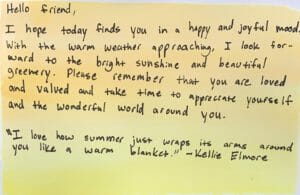 Hello friend,
I hope today finds you in a happy and joyful mood.
With the warm weather approaching, I look for-
ward to the bright sunshine and beautiful
greenery. Please remember that you are loved
and valued and take time to appreciate yourself
and the wonderful world around you.
"I love how summer just wraps its arms around
you like a warm blanket." -Kellie Elmore